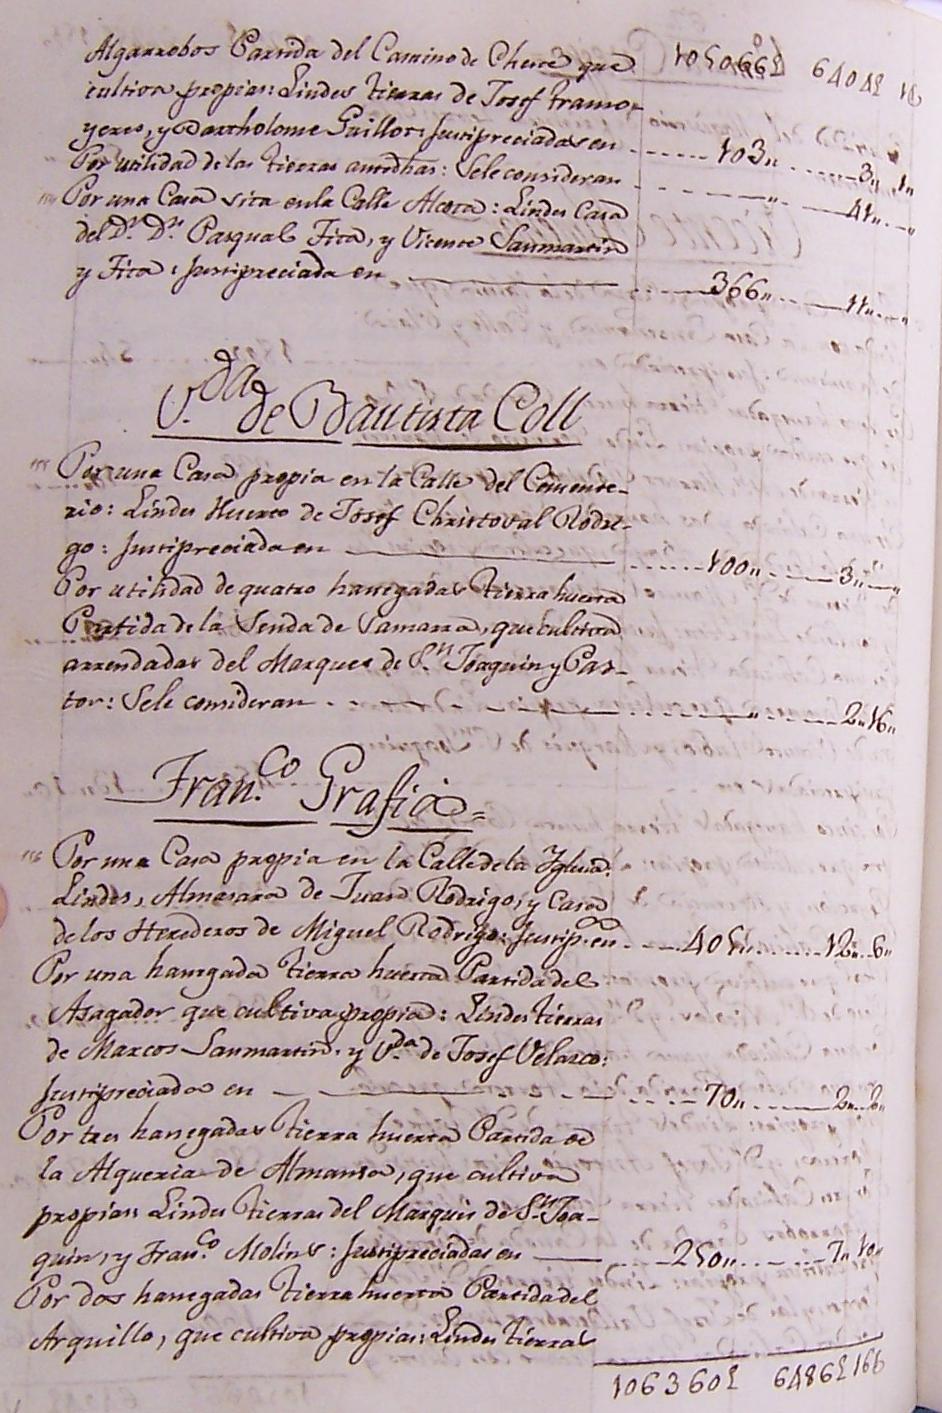 Algarrobos Partida del Camino de Cheste que 105066£ 6404£ 18
cultiva propias: Lindes tierras de Josef tramo-
yeres, y Bartholome Guillot: Justipreciadas en 103,, 3,, 1,,
Por utilidad de las tierras antedhas: Sele consideran ,, 41,, ,,
Por una Casa sita en la Calle Alcota: Lindes Casa
del Dr. Dn. Pasqual Fita, y Vicente Sanmartin
y Fita: Justipreciada en 366,, 11,, ,,
V.da de Bautista Coll
155 Por una Casa propia en la Calle del Cimente-
rio: Lindes Huerto de Josef Christoval Rodri-
go: Justipreciada en 100,, 3,, ,,
Por utilidad de quatro hanegadas tierra huerta
Partida de la Senda de Camarra, que cultiva
arrendadas del Marques de Sn. Joaquin y Pas-
tor: Sele consideran ,, 2,, 16,,
Fran.co Grafia=
156 Por una Casa propia en la Calle de la Yglecia:
Lindes, Almasara de Juan Rodrigo, y Casa
de los Herederos de Miguel Rodrigo: Justip.da en 405,, 12,, 6,,
Por una hanegada tierra huerta Partida del
Asagador que cultiva propia: Lindes tierras
de Marcos Sanmartin, y V.da de Josef Velarco:
Justipreciada en 70,, 2,, 2,,
Por tres hanegadas tierra huerta Partida de
la Alqueria de Almansa, que cultiva
propias: Lindes tierras del Marques de Sn. Joa-
quin, y Fran.co Molins: Justipreciadas en 250,, 7,, 10,,
Por dos hanegadas tierra huerta Partida del
Arquillo, que cultiva propias: Lindes tierras
106360£ 6486£ 166